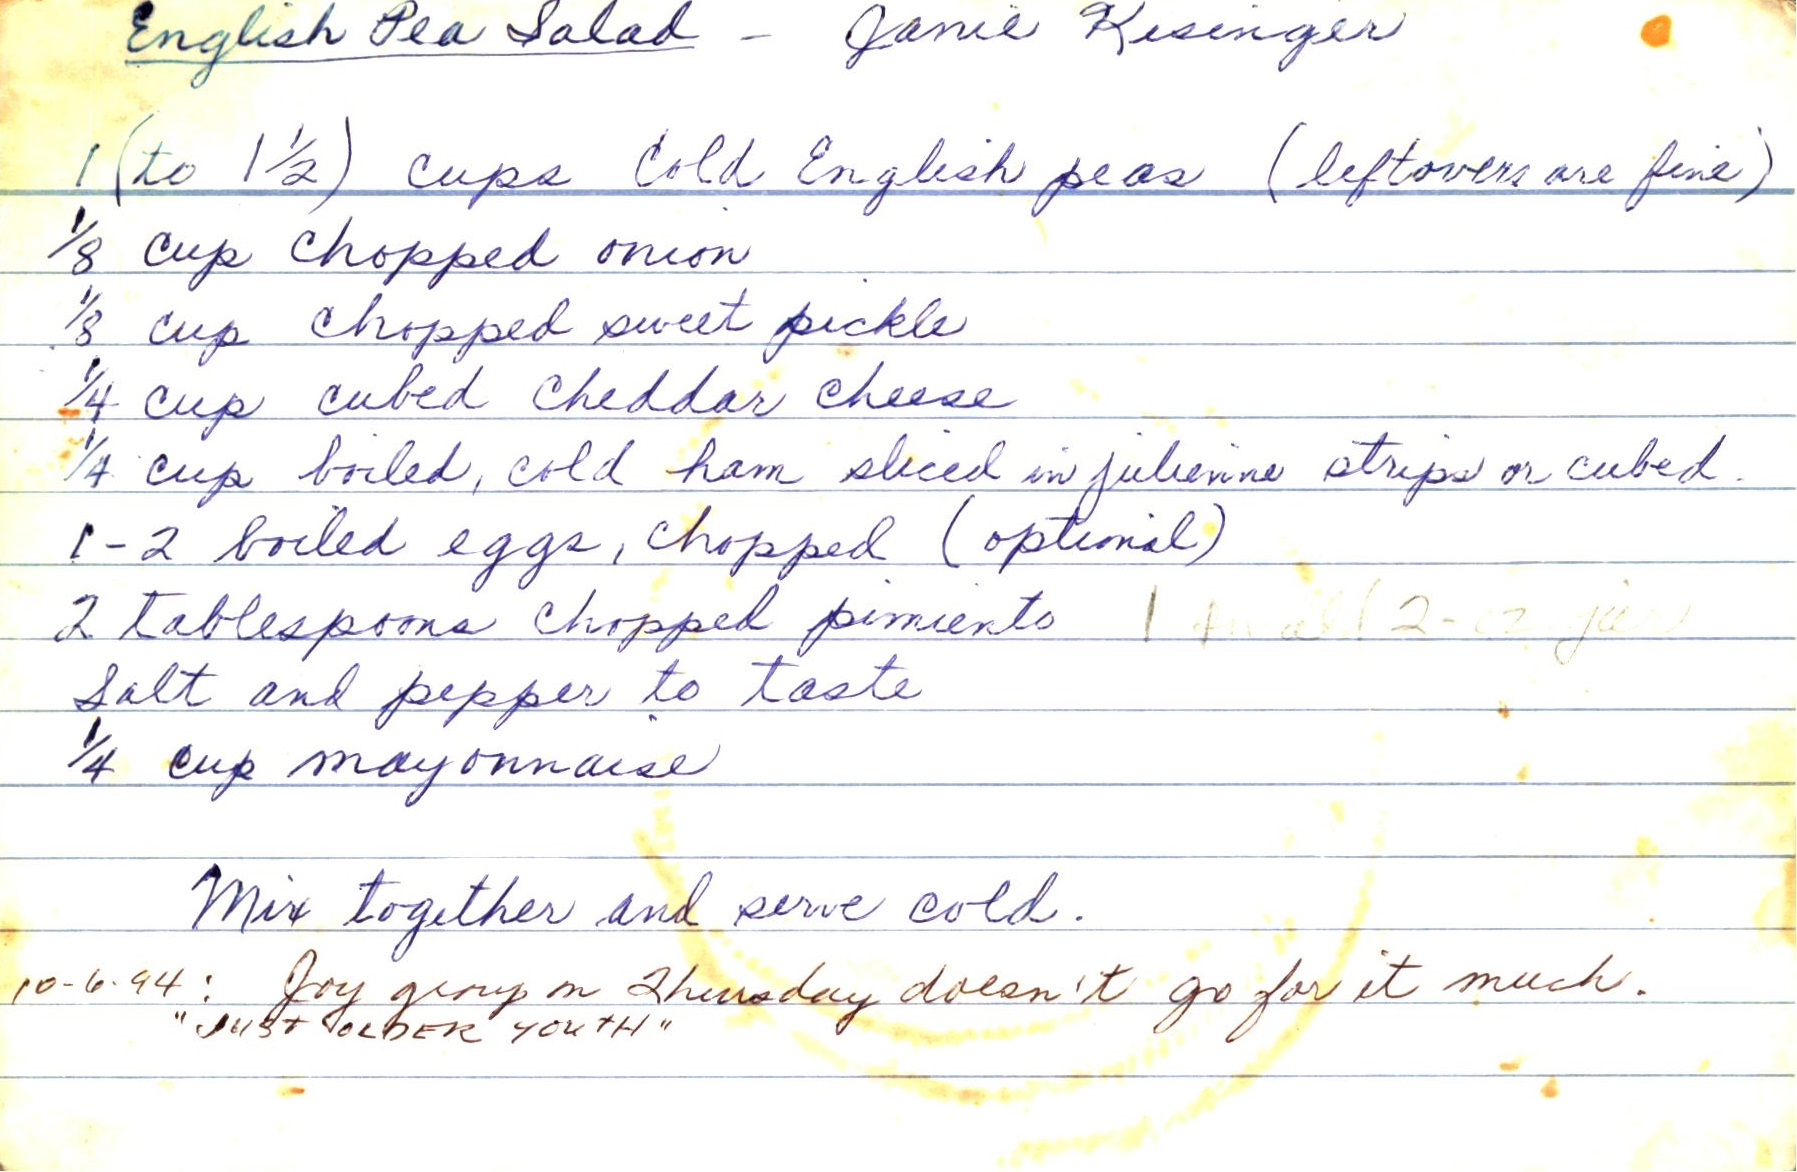 English Pea Salad - Janie Kisinger
1 (to 1 1/2) cups cold English peas (leftovers are fine)
1/8 cup chopped onion
1/8 cup chopped sweet pickle
1/4 cup cubed cheddar cheese
1/4 cup boiled, cold ham sliced in julienne strips or cubed.
1-2 boiled eggs, chopped (optional)
2 tablespoons chopped pimiento 1 small 2-oz jar
Salt and pepper to taste
1/4 cup mayonnaise
Mix together and serve cold.
10-6-94: Joy group on Thursday doesn't go for it much.
"JUST OLDER YOUTH"